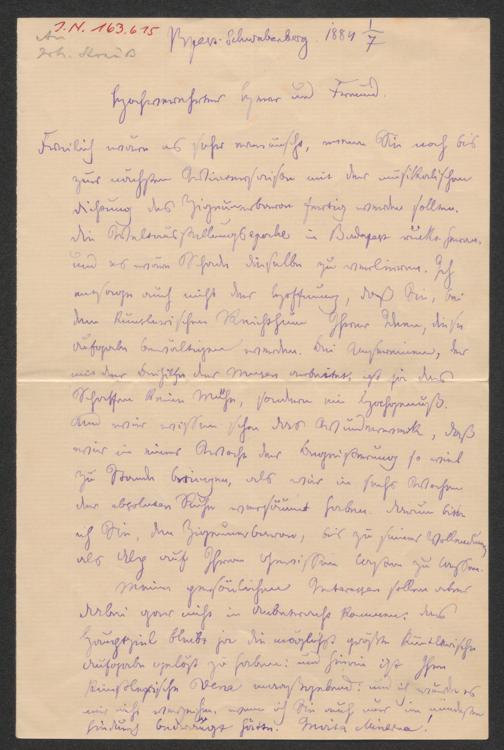 I.N. 163.615
An
Joh. Strauß
Bpest-Schwabenberg. 1884 1/7
Hochverehrter Herr und Freund.
Freilich wäre es sehr erwünscht, wenn Sie noch bis
zur nächsten Wintersaison mit der musikalischen
Dichtung des Zigeunerbaron fertig werden sollten.
Die Weltausstellungsepoche in Budapest rückt heran.
und es wäre Schade dieselbe zu verlieren. Ich
entsage auch nicht der Hoffnung, daß Sie, bei
dem künstlerischen Reichthum Ihrer Ideen, diese
Aufgabe bewältigen werden. Bei Jemanden, der
mit der Beihilfe der Musen arbeitet, ist ja das
Schaffen keine Mühe, sondern ein Hochgenuß.
Und wir wissen schon das Wunderwerk, daß
wir in einer Woche der Begeisterung so viel
zu Stande bringen, als wir in sechs Wochen
der absoluten Ruhe versäumt haben. Darum bitte
ich Sie, den Zigeunerbaron, bis zu seiner Vollendung
als Alp auf Ihrem Gewissen lasten zu lassen.
Meine persönlichen Interessen sollen aber
dabei gar nicht in Anbetracht kommen. Das
Hauptziel bleibt ja die möglichst große künstlerische
Aufgabe gelöst zu haben: und hierin ist Ihre
künstlerische Vena maaßgebend: und ich würde es
mir nie verzeihen, wenn ich Sie auch nur im mindesten
hindurch gedrängt hätte. Invita Minerva.